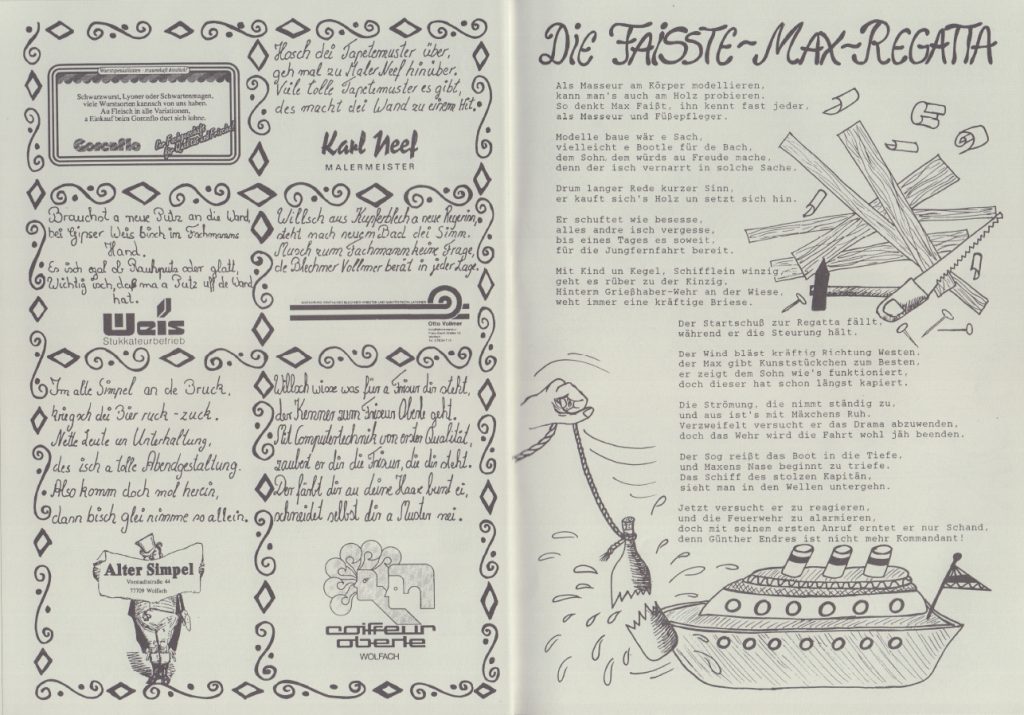 Wurstspezialitäten - traumhaft köstlich!
Schwarzwurst, Lyoner oder Schwartenmagen,
viele Wurstsorten kannsch von uns haben.
Au Fleisch in alle Variationen,
a Einkauf beim Gorzeflo duet sich lohne.
Gorzeflo
Hosch dei Tapetemuster über,
geh mal zu Maler Neef hinüber.
Viele tolle Tapetemuster es gibt,
des macht dei Wand zu einem Hit.
Karl Neef
MALERMEISTER
Brauchst a neue Putz an die Wand,
bei Gipser Weis bisch im Fachmanns
Hand.
Es isch egal ob Rauhputz oder glatt,
Wichtig isch, daß ma a Putz uff de Wand
hat.
Weis
Stukkateurbetrieb
Willsch aus Kupferblech a neue Regerinn,
steht nach neuem Bad dei Sinn.
Musch zum Fachmann keine Frage,
de Blechner Vollmer berät in jeder Lage.
Otto Vollmer
Im alte Simpel an de Bruck,
kriegsch dei Bier ruck-zuck.
Nette Leute un Unterhaltung,
des isch a tolle Abendgestaltung.
Also komm doch mol herein,
dann bisch glei nimme so allein.
Alter Simpel
Vorstadtstraße 44
77709 Wolfach
Willsch wisse was für a Frisur dir steht,
der Kenner zum Friseur Oberle geht.
Mit Computertechnik von erster Qualität,
zaubert er dir die Frisur, die dir steht.
Der färbt dir au deine Haar bunt ei,
schneidet selbst dir a Muster nei.
coiffeur
oberle
WOLFACH
DIE FAISSTE-MAX-REGATTA
Als Masseur am Körper modellieren,
kann man's auch am Holz probieren.
So denkt Max Faißt, ihn kennt fast jeder,
als Masseur und Füßepfleger.
Modelle baue wär e Sach,
vielleicht e Bootle für de Bach,
dem Sohn, dem würds au Freude mache,
denn der isch vernarrt in solche Sache.
Drum langer Rede kurzer Sinn,
er kauft sich's Holz un setzt sich hin.
Er schuftet wie besesse,
alles andre isch vergesse,
bis eines Tages es soweit,
für die Jungfernfahrt bereit.
Mit Kind un Kegel, Schifflein winzig,
geht es rüber zu der Kinzig.
Hinterm Grießhaber-Wehr an der Wiese,
weht immer eine kräftige Briese.
Der Startschuß zur Regatta fällt,
während er die Steurung hält.
Der Wind bläst kräftig Richtung Westen,
der Max gibt Kunststückchen zum Besten,
er zeigt dem Sohn wie's funktioniert,
doch dieser hat schon längst kapiert.
Die Strömung, die nimmt ständig zu,
und aus ist's mit Mäxchens Ruh.
Verzweifelt versucht er das Drama abzuwenden,
doch das Wehr wird die Fahrt wohl jäh beenden.
Der Sog reißt das Boot in die Tiefe,
und Maxens Nase beginnt zu triefe.
Das Schiff des stolzen Kapitän,
sieht man in den Wellen untergehn.
Jetzt versucht er zu reagieren,
und die Feuerwehr zu alarmieren,
doch mit seinem ersten Anruf erntet er nur Schand,
denn Günther Endres ist nicht mehr Kommandant!